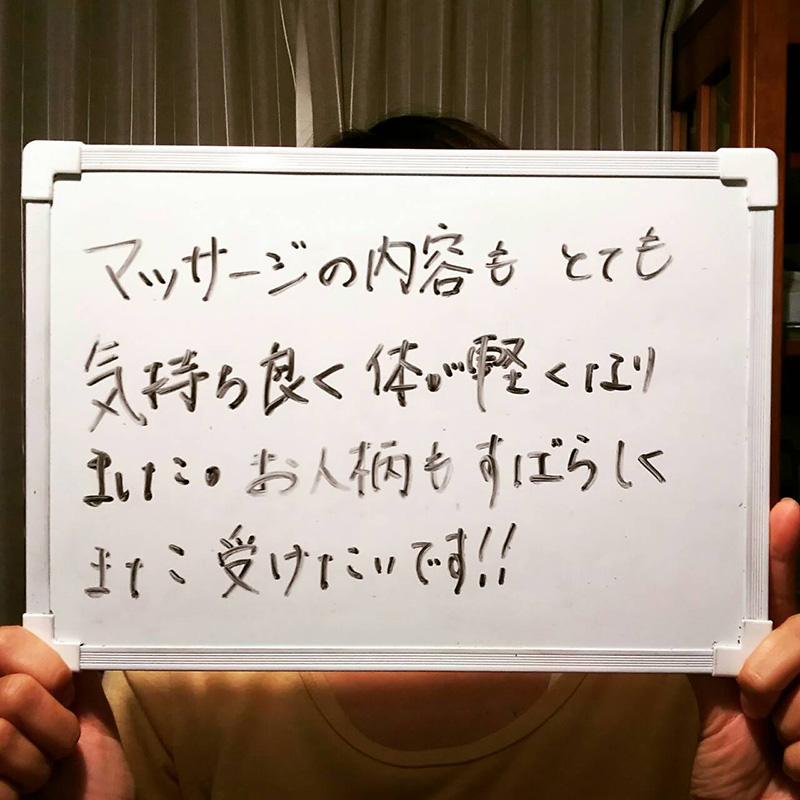 マッサージの内容も とても
気持ち良く体が軽くなり
ました。お人柄もすばらしく
また受けたいです!!